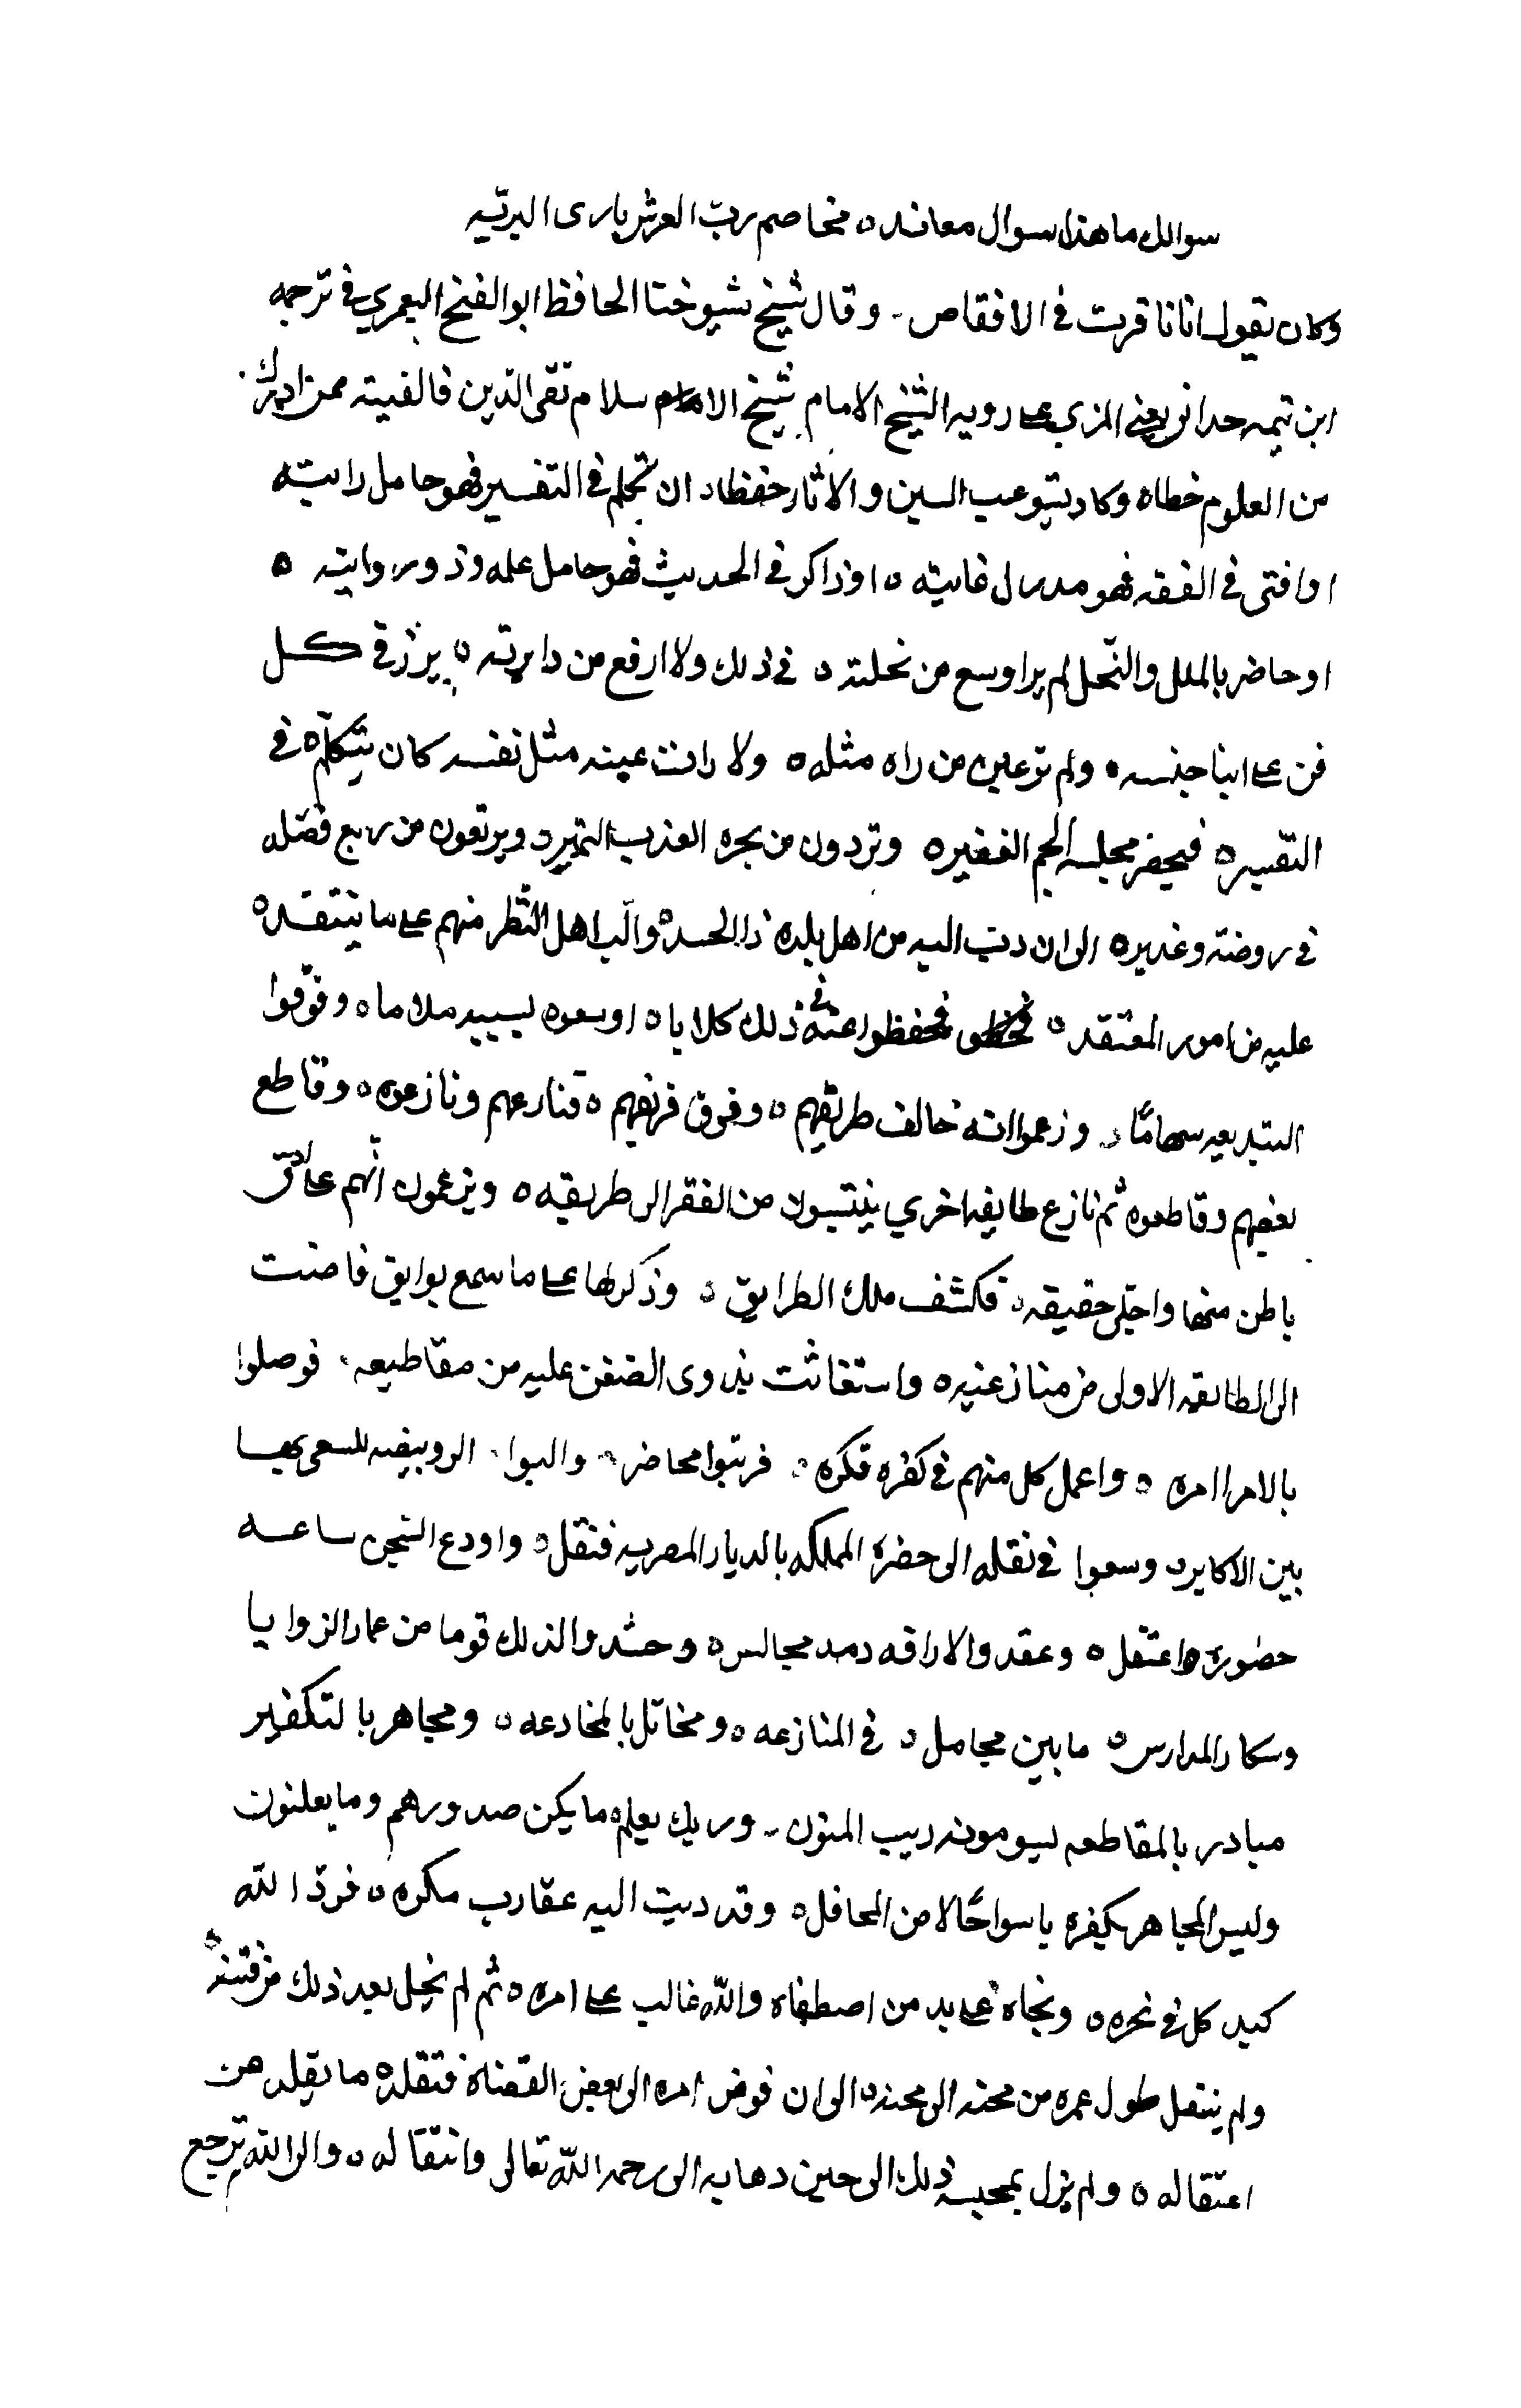 سوالك ما هذا سوال معاند ه مخاصم ربّ العرش بارى البريّه
وكان يقول انا نا قرىت في الافقاص - وقال شيخ شيوخنا الحافظ ابو الفتح اليعمري في ترجمه
ابن تيميه حدانى يعني المزي على رويه الشيخ الامام شيخ الاسلام تقى الدّين فالفيته ممن ادرك
من العلوم خطاه وكاد يستوعب السنن والاثار حفظا ان تكلم في التفسير فهو حامل رايته
اوافتى في الفقه فهو مدرك غايته ه او ذاكر في الحديث فهو حامل علمه وذو روايته ه
او حاضر بالملل والنّحل لم ير اوسع من نحلته ه في ذلك ولا ارفع من درايته ه برّز في كل
فن على ابنا جنسه ه ولم تر عين من راه مثله ه ولا رات عينه مثل نفسه كان يتكلّم في
التفسير ه فيحضر مجلسه الجم الغفير ه وتردون من بحره العذب النمير ه ويرتعون من ربيع فضله
في روضة وغدير ه الى ان دبّ اليه من اهل بلده دا الحسد ه والّب اهل النّظر منهم على ما ينتقد ه
عليه من امور المعتقد ه فحفظوا عنه في ذلك كلاما ه اوسعوه بسببه ملاما ه وفوّقوا
لتبديعه سهامًا ه وزعموا انه خالف طريقهم ه وفرق فريقهم ه فنازعهم ونازعوه ه وقاطع
بعضهم وقاطعوه ثم نازع طايفه اخري ينتسبون من الفقر الى طريقه ه ويزعمون انّهم على ادقّ
باطن منها واجلى حقيقه ه فكشف تلك الطرايق ه وذكر لها على ما سمع بوايق فاضت
الى الطايفه الاولى من منازعيه ه واستغاثت بذوى الضغن عليه من مقاطيعه ه فوصلوا
بالامرا امره ه واعمل كل منهم في كفره فكره ه فرتبوا محاضر ه والبوا ه الرويبضه للسعى بها
بين الاكابر ه وسعوا في نقله الى حضرة المملكه بالديار المصريه فنقل ه واودع السّجن ساعه
حضوره واعتقل ه وعقدوا لاراقه دمه مجالس ه وحشدوا لذلك قوما من عمار الزوايا
وسكان المدارس ه ما بين مجامل ه في المنازعه ه ومخاتل بالمخادعه ه ومجاهر بالتكفير
مبادر بالمقاطعه يسومونه ريب المنون - وربك يعلم ما تكن صدورهم وما يعلنون
وليس المجاهر بكفره باسوا حًالا من المخاتل ه وقد دبت اليه عقارب مكره ه فردّ الله
كيد كل في نحره ه ونجاه على يد من اصطفاه والله غالب على امره ه ثم لم يخل بعد ذلك من فتنة
ولم ينتقل طول عمره من محنه الى محنه ه الى ان فوض امره الى بعض القضاة فتقلد ه ما تقلد من
اعتقاله ه ولم يزل بمحبسه ذلك الى حين ذهابه الى رحمه الله تعالى وانتقاله ه والى الله ترجع